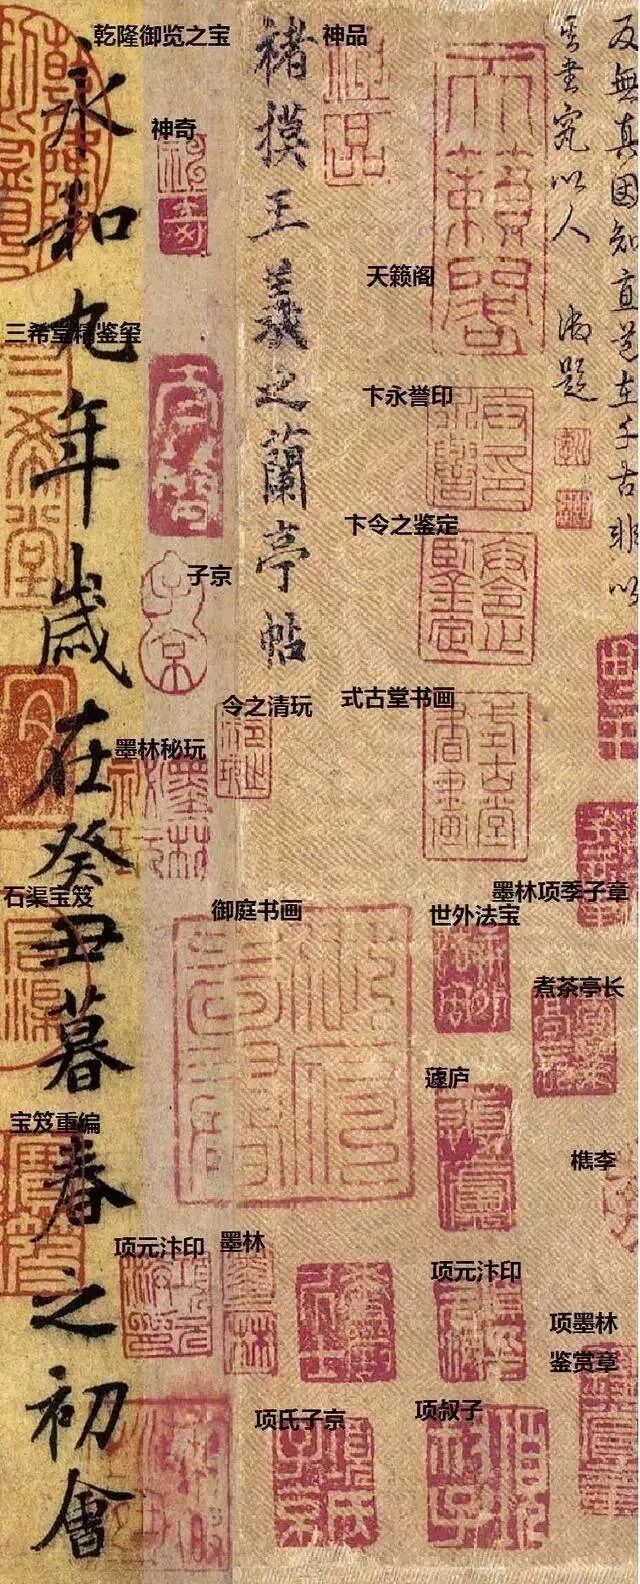 反無真因知直道在千古非以
書究以人 題
褚摸王羲之蘭亭帖
永和九年歲在癸丑暮春之初會
乾隆御览之宝
神品
神奇
天籁阁
三希堂精鉴玺
卞永誉印
卞令之鉴定
子京
令之清玩
式古堂书画
墨林秘玩
墨林项季子章
石渠宝笈
御庭书画
世外法宝
煮茶亭长
蘧庐
宝笈重编
檇李
项元汴印
墨林
项元汴印
项墨林
鉴赏章
项氏子京
项叔子